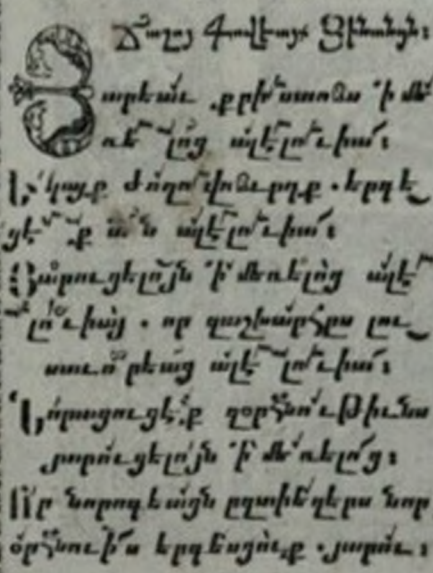 Ճաշոյ Գովեայ Յինանցն։
Յարեաւ քրիստոս ի մե
ռելոց ալէլուիա։
Եկայք ժողովուրդք. երգե
ցէք տն ալէլուիա։
Յարուցելոյն ի մեռելոց ալէ
լուիայ. որ զաշխարհս լու
սաւորեաց ալէլուիա։
զօրհնութիւնս
յարուցելոյն ի մեռելոց։
Որ նորոգեացն զտիեզերս նոր
օրհնութիս երգեսցուք. յարու։